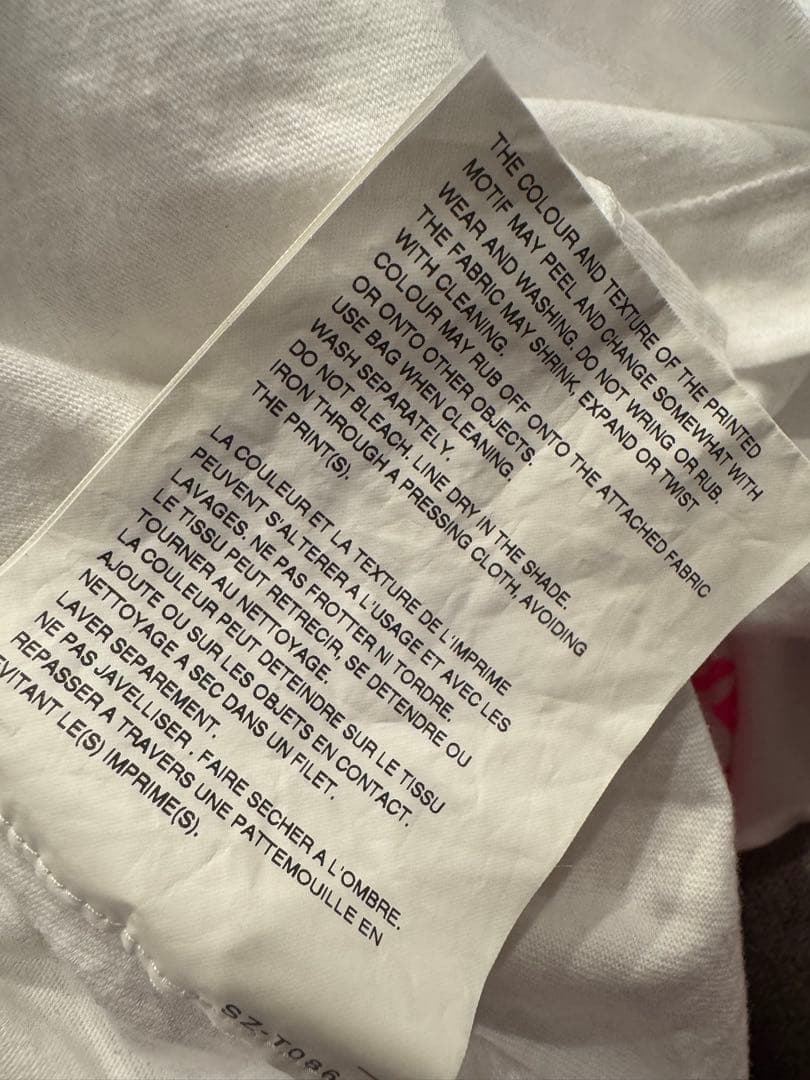 THE COLOUR AND TEXTURE OF THE PRINTED
MOTIF MAY PEEL AND CHANGE SOMEWHAT WITH
WEAR AND WASHING. DO NOT WRING OR RUB.
THE FABRIC MAY SHRINK, EXPAND OR TWIST
WITH CLEANING.
COLOUR MAY RUB OFF ONTO THE ATTACHED FABRIC
OR ONTO OTHER OBJECTS.
USE BAG WHEN CLEANING.
WASH SEPARATELY.
DO NOT BLEACH. LINE DRY IN THE SHADE.
IRON THROUGH A PRESSING CLOTH, AVOIDING
THE PRINT(S).
LA COULEUR ET LA TEXTURE DE L'IMPRIME
PEUVENT S'ALTERER A L'USAGE ET AVEC LES
LAVAGES. NE PAS FROTTER NI TORDRE.
LE TISSU PEUT RETRECIR, SE DETENDRE OU
TOURNER AU NETTOYAGE.
LA COULEUR PEUT DETEINDRE SUR LE TISSU
AJOUTE OU SUR LES OBJETS EN CONTACT.
NETTOYAGE A SEC DANS UN FILET.
LAVER SEPAREMENT.
NE PAS JAVELLISER . FAIRE SECHER A L'OMBRE.
REPASSER A TRAVERS UNE PATTEMOUILLE EN
EVITANT LE(S) IMPRIME(S).
SZ-T086